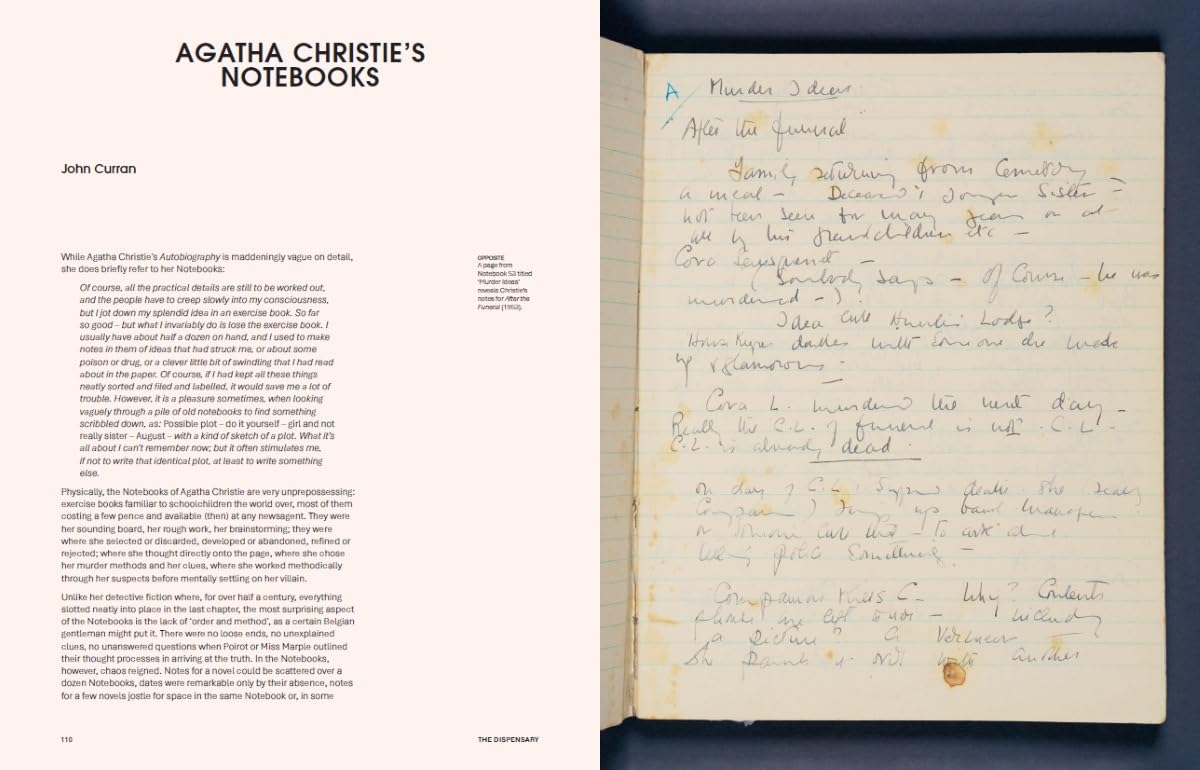 AGATHA CHRISTIE’S
NOTEBOOKS
John Curran
While Agatha Christie’s Autobiography is maddeningly vague on detail,
she does briefly refer to her Notebooks:
Of course, all the practical details are still to be worked out,
and the people have to creep slowly into my consciousness,
but I jot down my splendid idea in an exercise book. So far
so good – but what I invariably do is lose the exercise book. I
usually have about half a dozen on hand, and I used to make
notes in them of ideas that had struck me, or about some
poison or drug, or a clever little bit of swindling that I had read
about in the paper. Of course, if I had kept all these things
neatly sorted and filed and labelled, it would save me a lot of
trouble. However, it is a pleasure sometimes, when looking
vaguely through a pile of old notebooks to find something
scribbled down, as: Possible plot – do it yourself – girl and not
really sister – August – with a kind of sketch of a plot. What it’s
all about I can’t remember now; but it often stimulates me,
if not to write that identical plot, at least to write something
else.
Physically, the Notebooks of Agatha Christie are very unprepossessing:
exercise books familiar to schoolchildren the world over, most of them
costing a few pence and available (then) at any newsagent. They were
her sounding board, her rough work, her brainstorming; they were
where she selected or discarded, developed or abandoned, refined or
rejected; where she thought directly onto the page, where she chose
her murder methods and her clues, where she worked methodically
through her suspects before mentally settling on her villain.
Unlike her detective fiction where, for over half a century, everything
slotted neatly into place in the last chapter, the most surprising aspect
of the Notebooks is the lack of ‘order and method’, as a certain Belgian
gentleman might put it. There were no loose ends, no unexplained
clues, no unanswered questions when Poirot or Miss Marple outlined
their thought processes in arriving at the truth. In the Notebooks,
however, chaos reigned. Notes for a novel could be scattered over a
dozen Notebooks, dates were remarkable only by their absence, notes
for a few novels jostle for space in the same Notebook or, in some
OPPOSITE
A page from
Notebook 53 titled
‘Murder Ideas’
reveals Christie’s
notes for After the
Funeral (1953).
110
THE DISPENSARY
A Murder Ideas
After the funeral
Family returning from Cemetery
a meal – Deceased's younger Sister –
not been seen for many years or at
all by his grandchildren etc –
Cora
says – of Course – he was
murdered –)
Idea Hunter's Lodge?
doubles with someone else made
up glamorous –
Cora L. murdered the next day –
Really the C.L. of funeral is not C.L. –
C.L. is already dead
on day of
Companion bank manager
to ask
something –
Companion Why? Contents
A Vermeer
She not another